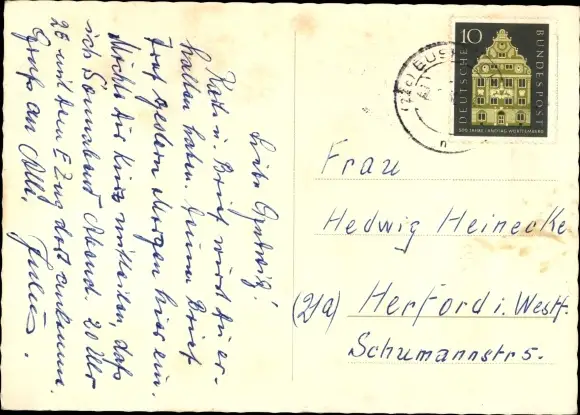 Liebe Hedwig!
Karte u. Brief wirst Du er-
halten haben. Deinen Brief
traf gestern Morgen hier ein.
Möchte Dir kurz mitteilen, daß
ich Sonnabend Abend 20 Uhr
28 mit dem E Zug dort ankomme.
Gruß an Alle. Julius.
10
DEUTSCHE BUNDESPOST
500 JAHRE LANDTAG WÜRTTEMBERG
Frau
Hedwig Heinecke
(21a) Herford i. Westf.
Schumannstr 5.